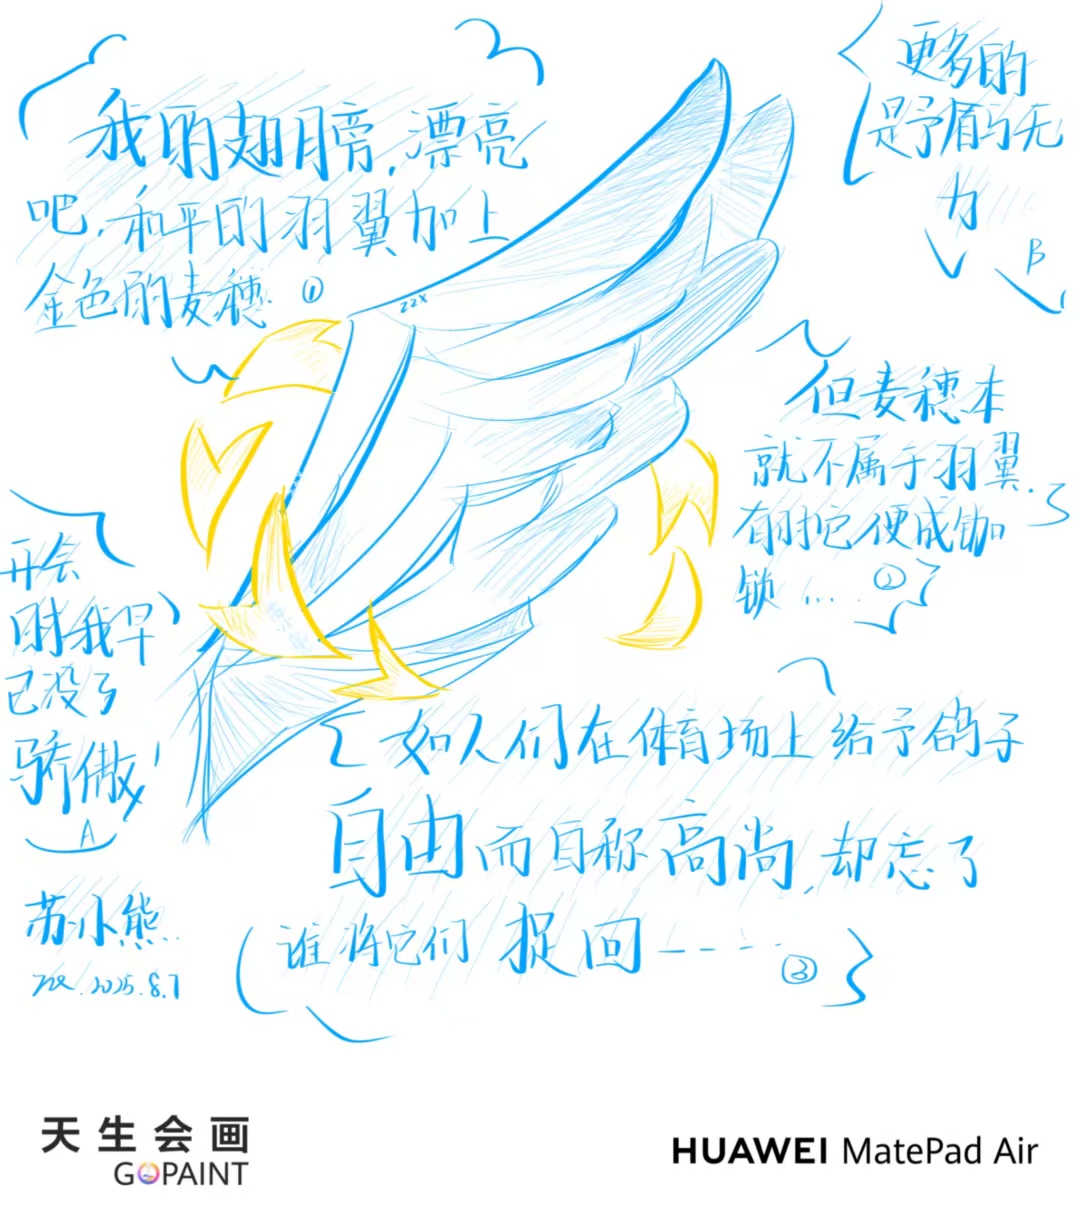 我的翅膀,漂亮
吧.和平的羽翼加上
金色的麦穗. ①
更多的
是矛盾与无
力
B
ZZX
但麦穗本
就不属于羽翼.
有时它便成伽
锁...... ②
开会
时我早
已没了
骄傲!
A
如人们在体育场上给予鸽子
自由而自称高尚,却忘了
谁将它们捉回----- ③
苏小熊..
ZZX.2025.8.7
天生会画
GOPAINT
HUAWEI MatePad Air